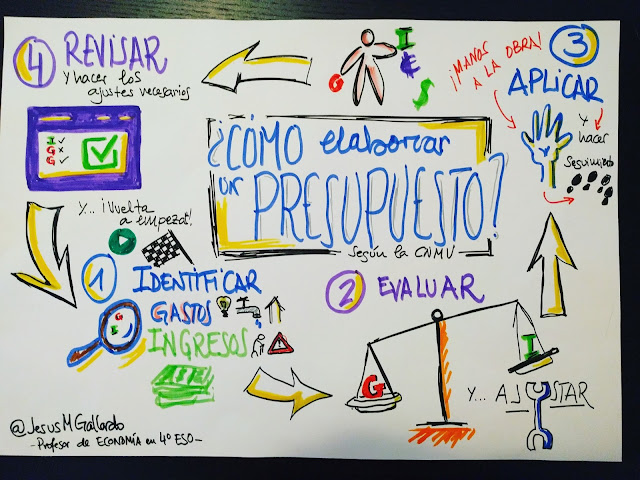 ¿CÓMO elaborar
un PRESUPUESTO?
según la CNMV
1 IDENTIFICAR
GASTOS
INGRESOS
G
I
2 EVALUAR
G
I
Y... AJUSTAR
3
APLICAR
¡MANOS
A LA OBRA!
Y
hacer
Seguimiento
G
I
€
$
4 REVISAR
Y hacer los
ajustes necesarios
I
G
G
Y... ¡Vuelta
a empezar!
@JesusMGallardo
-Profesor de ECONOMÍA en 4º ESO-